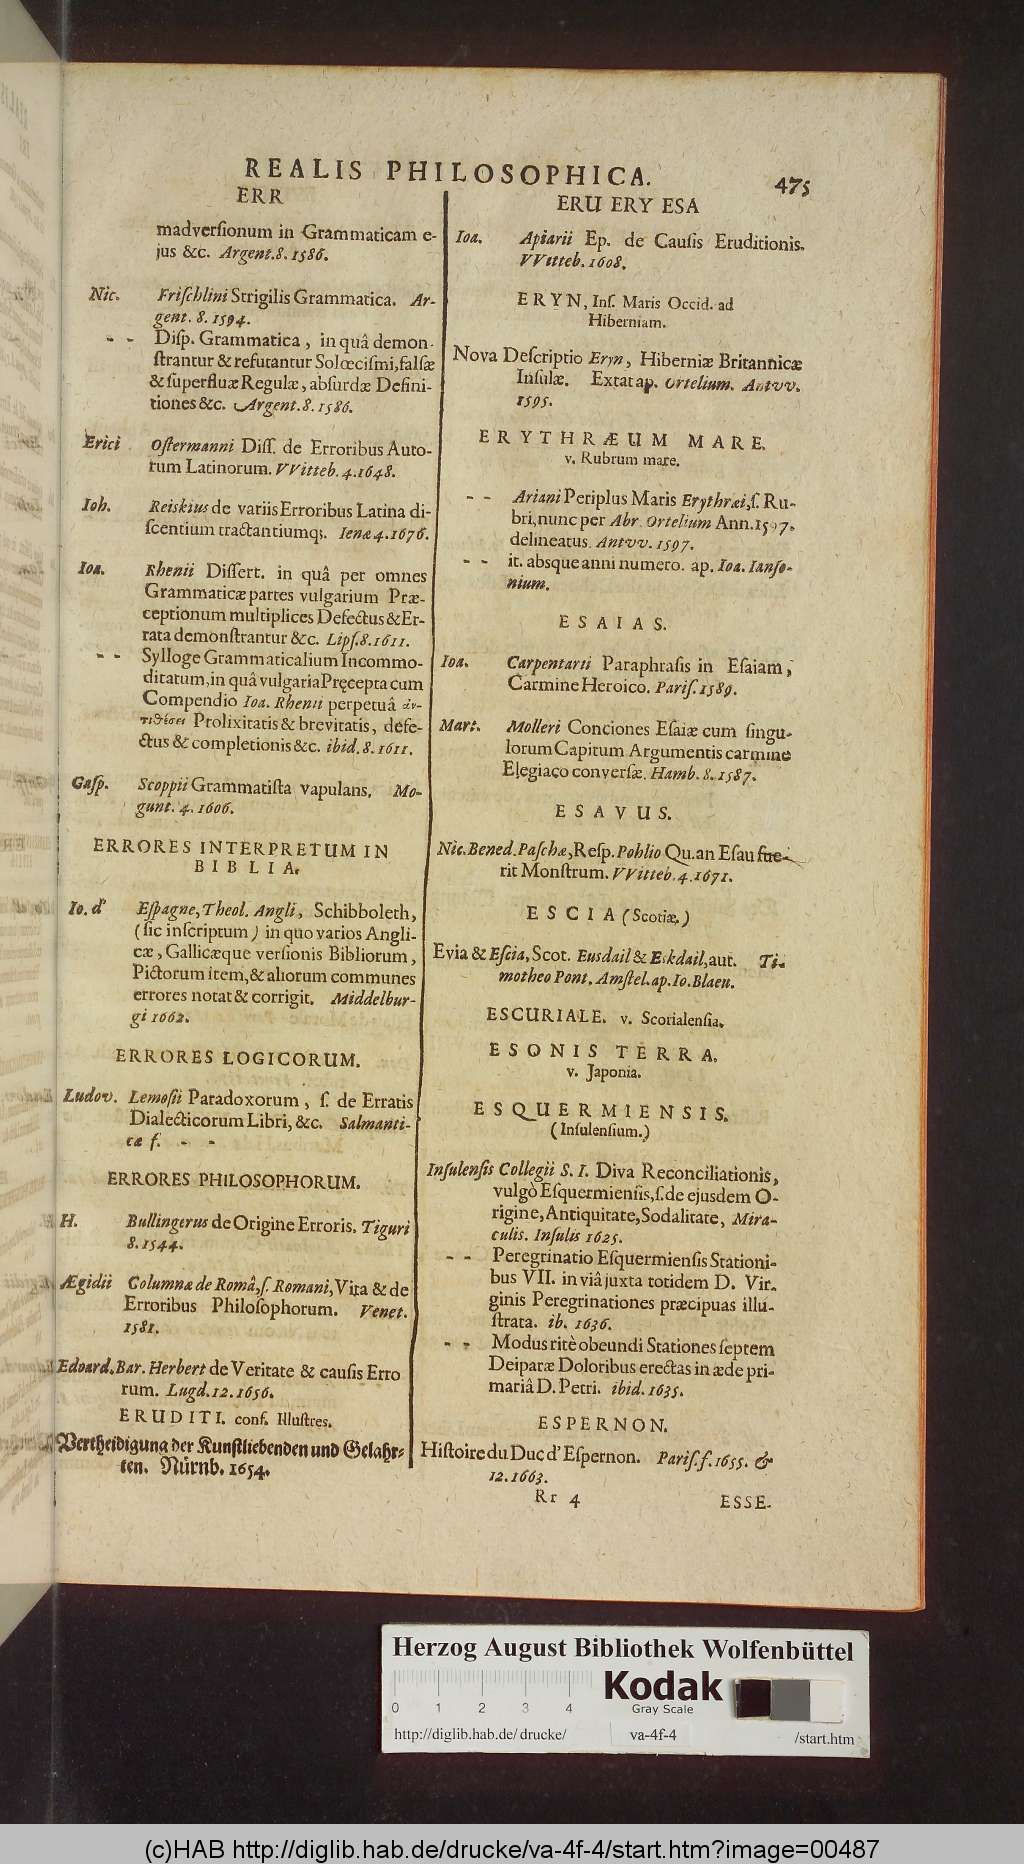 REALIS PHILOSOPHICA.
475
ERR
madversionum in Grammaticam e-
jus &c. Argent. 8. 1586.
Nic. Frischlini Strigilis Grammatica. Ar-
gent. 8. 1594.
- - Disp. Grammatica, in quâ demon-
strantur & refutantur Solœcismi, falsæ
& superfluæ Regulæ, absurdæ Defini-
tiones &c. Argent. 8. 1586.
Erici Ostermanni Diss. de Erroribus Auto-
rum Latinorum. VVitteb. 4. 1648.
Ioh. Reiskius de variis Erroribus Latina di-
scentium tractantiumq;. Ienæ 4. 1676.
Ioa. Rhenii Dissert. in quâ per omnes
Grammaticæ partes vulgarium Præ-
ceptionum multiplices Defectus & Er-
rata demonstrantur &c. Lips. 8. 1611.
- - Sylloge Grammaticalium Incommo-
ditatum, in quâ vulgaria Pręcepta cum
Compendio Ioa. Rhenii perpetuâ ἀν-
τιθέσει Prolixitatis & brevitatis, defe-
ctus & completionis &c. ibid. 8. 1611.
Gasp. Scoppii Grammatista vapulans. Mo-
gunt. 4. 1606.
ERRORES INTERPRETUM IN
BIBLIA.
Io. d' Espagne, Theol. Angli, Schibboleth,
(sic inscriptum) in quo varios Angli-
cæ, Gallicæque versionis Bibliorum,
Pictorum item, & aliorum communes
errores notat & corrigit. Middelbur-
gi 1662.
ERRORES LOGICORUM.
Ludov. Lemosii Paradoxorum, s. de Erratis
Dialecticorum Libri, &c. Salmanti-
cæ f. - -
ERRORES PHILOSOPHORUM.
H. Bullingerus de Origine Erroris. Tiguri
8. 1544.
Ægidii Columnæ de Româ, s. Romani, Vita & de
Erroribus Philosophorum. Venet.
1581.
Edoard. Bar. Herbert de Veritate & causis Erro
rum. Lugd. 12. 1656.
ERUDITI. conf. Illustres.
Vertheidigung der Kunstliebenden und Gelahr-
ten. Nürnb. 1654.
ERU ERY ESA
Ioa. Apiarii Ep. de Causis Eruditionis.
VVitteb. 1608.
ERYN, Ins. Maris Occid. ad
Hiberniam.
Nova Descriptio Eryn, Hiberniæ Britannicæ
Insulæ. Extat ap. Ortelium. Antvv.
1595.
ERYTHRÆUM MARE.
v. Rubrum mare.
- - Ariani Periplus Maris Erythræi, s. Ru-
bri, nunc per Abr. Ortelium Ann. 1597.
delineatus. Antvv. 1597.
- - it. absque anni numero. ap. Ioa. Ianso-
nium.
ESAIAS.
Ioa. Carpentarii Paraphrasis in Esaiam,
Carmine Heroico. Paris. 1589.
Mart. Molleri Conciones Esaiæ cum singu-
lorum Capitum Argumentis carmine
Elegiaco conversæ. Hamb. 8. 1587.
ESAVUS.
Nic. Bened. Paschæ, Resp. Pohlio Qu. an Esau fue-
rit Monstrum. VVitteb. 4. 1671.
ESCIA (Scotiæ.)
Evia & Escia, Scot. Eusdail & Eskdail, aut. Ti-
motheo Pont. Amstel. ap. Io. Blaeu.
ESCURIALE. v. Scorialensia.
ESONIS TERRA.
v. Japonia.
ESQUERMIENSIS.
(Insulensium.)
Insulensis Collegii S. I. Diva Reconciliationis,
vulgò Esquermiensis, s. de ejusdem O-
rigine, Antiquitate, Sodalitate, Mira-
culis. Insulis 1625.
- - Peregrinatio Esquermiensis Stationi-
bus VII. in viâ juxta totidem D. Vir-
ginis Peregrinationes præcipuas illu-
strata. ib. 1636.
- - Modus ritè obeundi Stationes septem
Deiparæ Doloribus erectas in æde pri-
mariâ D. Petri. ibid. 1635.
ESPERNON.
Histoire du Duc d'Espernon. Paris. f. 1655. &
12. 1663.
Rr 4
ESSE-
Herzog August Bibliothek Wolfenbüttel
0 1 2 3 4
Kodak
Gray Scale
http://diglib.hab.de/drucke/ va-4f-4 /start.htm
(c)HAB http://diglib.hab.de/drucke/va-4f-4/start.htm?image=00487